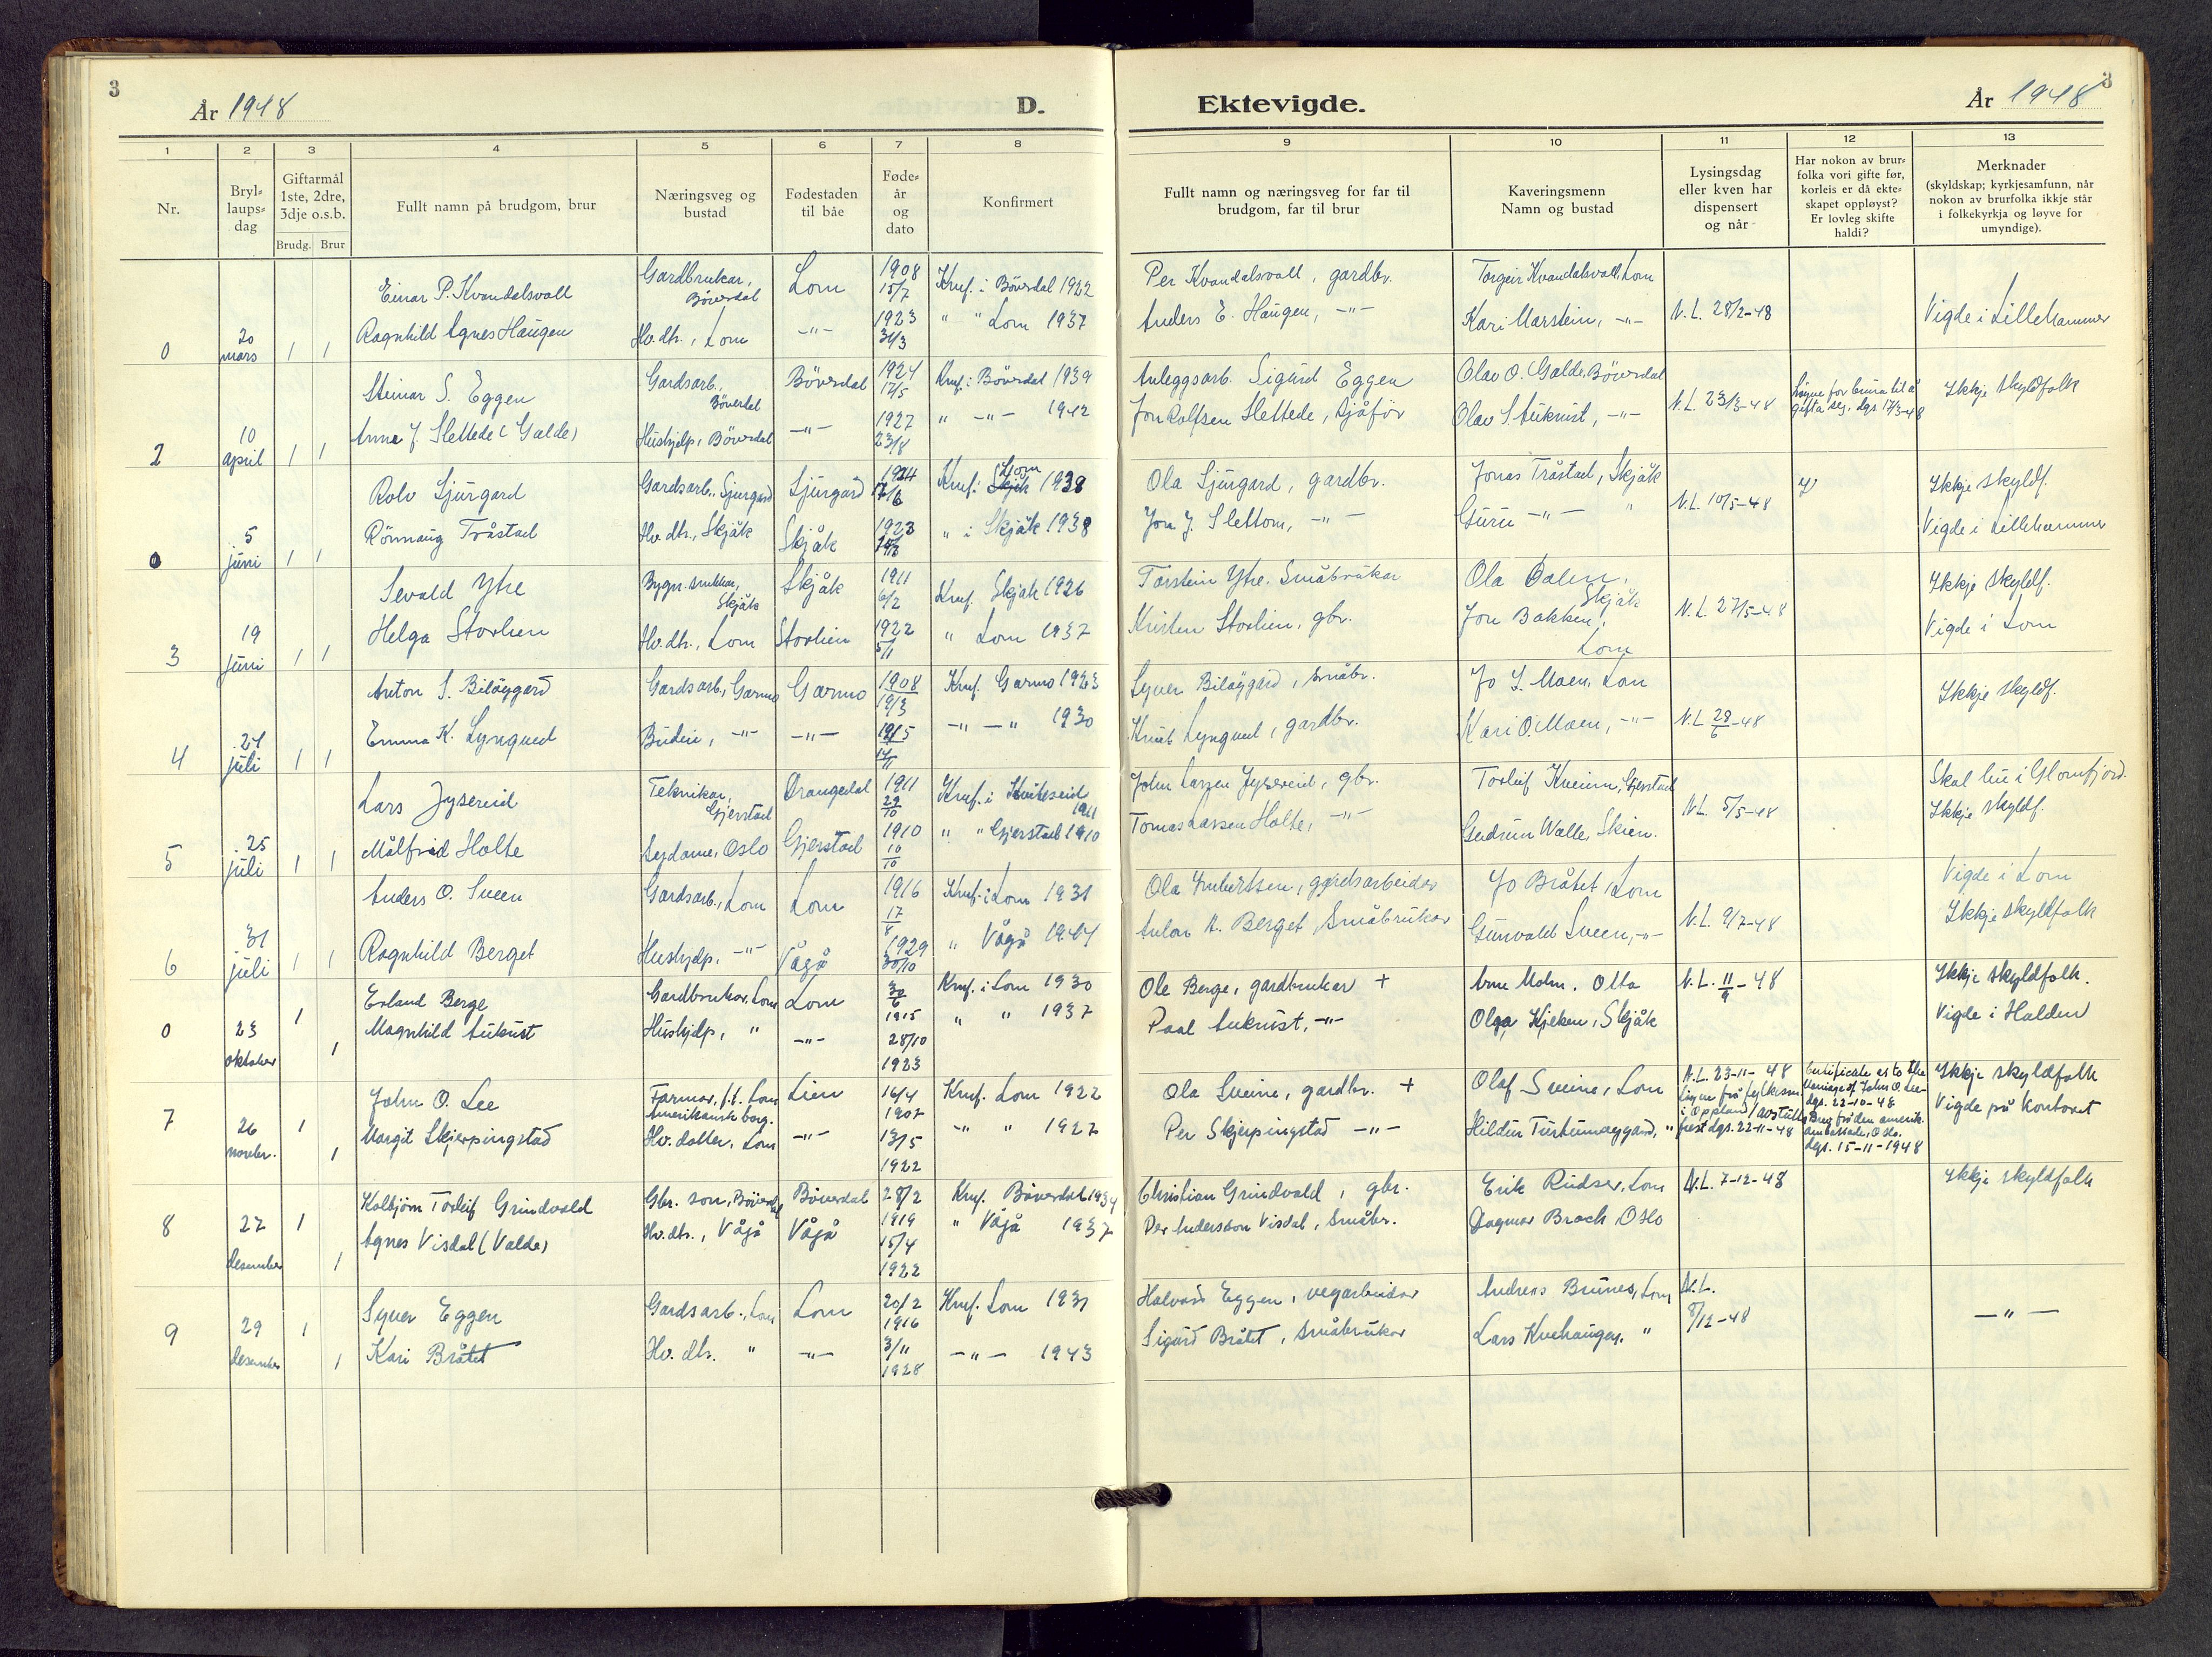 3
År 1948
D.
Ektevigde.
År 1948
3
1 2 3 4 5 6 7 8 9 10 11 12 13
Nr.
Bryl-
laups-
dag
Giftarmål
1ste, 2dre,
3dje o.s.b.
Brudg. Brur
Fullt namn på brudgom, brur
Næringsveg og
bustad
Fødestaden
til båe
Føde-
år
og
dato
Konfirmert
Fullt namn og næringsveg for far til
brudgom, far til brur
Kaveringsmenn
Namn og bustad
Lysingsdag
eller kven har
dispensert
og når
Har nokon av brur-
folka vori gifte før,
korleis er då ekte-
skapet oppløyst?
Er lovleg skifte
haldi?
Merknader
(skyldskap; kyrkjesamfunn, når
nokon av brurfolka ikkje står
i folkekyrkja og løyve for
umyndige).
0 20 mars 1 1
Einar P. Kvandalsvoll Gardbrukar, Böverdal Lom 1908 15/7 Knf. i Böverdal 1922 Per Kvandalsvoll, gardbr. Torgeir Kvandalsvoll, Lom
Ragnhild Agnes Haugen Hv.dtr., Lom -"- 1923 Knf. " " Lom 1937 Anders E. Haugen, -"- Kari Marstein, -"- N.L. 28/2-48 Vigde i Lillehammer
2 10 april 1 1
Steinar S. Eggen Gardsarb., Böverdal Böverdal 1924 17/5 Knf. i Böverdal 1939 Anleggsarb. Sigurd Eggen Olav O. Galde, Böverdal
Anna J. Slettede (Galde) Hushjelp, Böverdal -"- 1927 23/8 " -"- 1942 Jon Rolfsen Slettede, sjåför Olav S. Aukrust, -"- N.L. 23/3-48 Löyve for brura til å gifta seg, dgs 17/3-48 Ikkje skyldfolk
0 5 juni 1 1
Rolv Sjurgard Gardsarb., Sjurgard Sjurgard Knf. i Lom 1938 Ola Sjurgard, gardbr. Jonas Tråstad, Skjåk Ikkje skyldf.
Rönnaug Tråstad Hv.dtr., Skjåk Skjåk 1923 " i Skjåk 1938 Jon J. Slettom, -"- Guru -"- " N.L. 10/5-48 Vigde i Lillehammer
3 19 juni 1 1
Sevald Ytre Bygn.snikkar, Skjåk Skjåk 1911 6/2 Knf. Skjåk 1926 Torstein Ytre. Småbrukar Ola Dalen, Skjåk Ikkje skyldf.
Helga Storlien Hv.dtr., Lom Storlien 1922 5/11 " Lom 1937 Kristen Storlien, gbr. Jon Bakken, Lom N.L. 27/5-48 Vigde i Lom
4 24 juli 1 1
Anton S. Bilöygard Gardsarb., Garmo Garmo 1908 19/3 Knf. Garmo 1923 Syver Bilöygard, småbr. Jo S. Moen, Lom Ikkje skyldf.
Emma K. Lyngved Budeie, -"- -"- 1915 -"- -" 1930 Knut Lyngved, gardbr. Kari O. Moen, -"- N.L. 28/6-48
5 25 juli 1 1
Lars Jysereid Teknikar, Gjerstad Drangedal 1911 29/10 Knf. i Kviteseid 1911 John Larsen Jysereid, gbr. Torleif Kveinn, Gjerstad Skal bu i Glomfjord.
Målfrid Holte Sydame, Oslo Gjerstad 1910 10/10 " " Gjerstad 1910 Tomas Larsen Holte, -"- Gudrun Walle, Skien. N.L. 5/5-48 Ikkje skyldf.
6 31 juli 1 1
Anders O. Sveen Gardsarb., Lom Lom 1916 17/8 Knf. i Lom 1931 Ola Embertsen, gardsarbeider Jo Bråtet, Lom Vigde i Lom
Ragnhild Berget Hushjelp, -"- Vågå 1929 30/10 " Vågå 1944 Anton A. Berget, Småbrukar Gunvald Sveen, -"- N.L. 9/7-48 Ikkje skyldfolk
0 23 oktober 1 1
Erland Berge Gardbrukar, Lom Lom 30/6 1915 Knf. i Lom 1930 Ole Berge, gardbrukar + Arne Malm, Otta N.L. 11/9-48 Ikkje skyldfolk.
Magnhild Aukrust Hushjelp, " -"- 28/10 1923 " " 1937 Paal Aukrust, -"- Olga Kjeken, Skjåk Vigde i Halden
7 26 novbr. 1 1
John O. Lee Farmar, f.t. Lom Amerikansk borg. Lien 16/4 1907 Knf. Lom 1922 Ola Sveine, gardbr. + Olaf Sveine, Lom N.L. 23-11-48 Certificate as to the Marriage of John O. Lee - dgs. 22-10-48 Ikkje skyldfolk
Margit Skjerpingstad Hv. dotter, Lom -"- 13/5 1922 " " 1927 Per Skjerpingstad -"- Hildur Turtumöygard, " Löyve frå fylkesm. i Oppland dgs. 22-11-48 frå den amerik. ambassade, Oslo. dgs. 15-11-1948 Vigde på kontoret
8 27 desember 1 1
Kolbjörn Torleif Grindvold Gbr. son, Böverdal Böverdal 28/2 1919 Knf. Böverdal 1934 Christian Grindvold, gbr. Erik Rudser, Lom N.L. 7-12-48 Ikkje skyldfolk
Agnes Visdal (Valde) Hv.dtr., Vågå Vågå 15/4 1922 " Vågå 1937 Per Andersson Visdal, småbr. Dagmar Brock, Oslo
9 29 desember 1 1
Syver Eggen Gardsarb., Lom Lom 20/2 1916 Knf. Lom 1931 Halvard Eggen, vegarbeidar Andreas Brunes, Lom N.L. 8/12-48 -"-
Kari Bråtet Hv. dtr. " -"- 3/11 1928 -"- 1943 Sigurd Bråtet, småbrukar Lars Kvehaugen, "